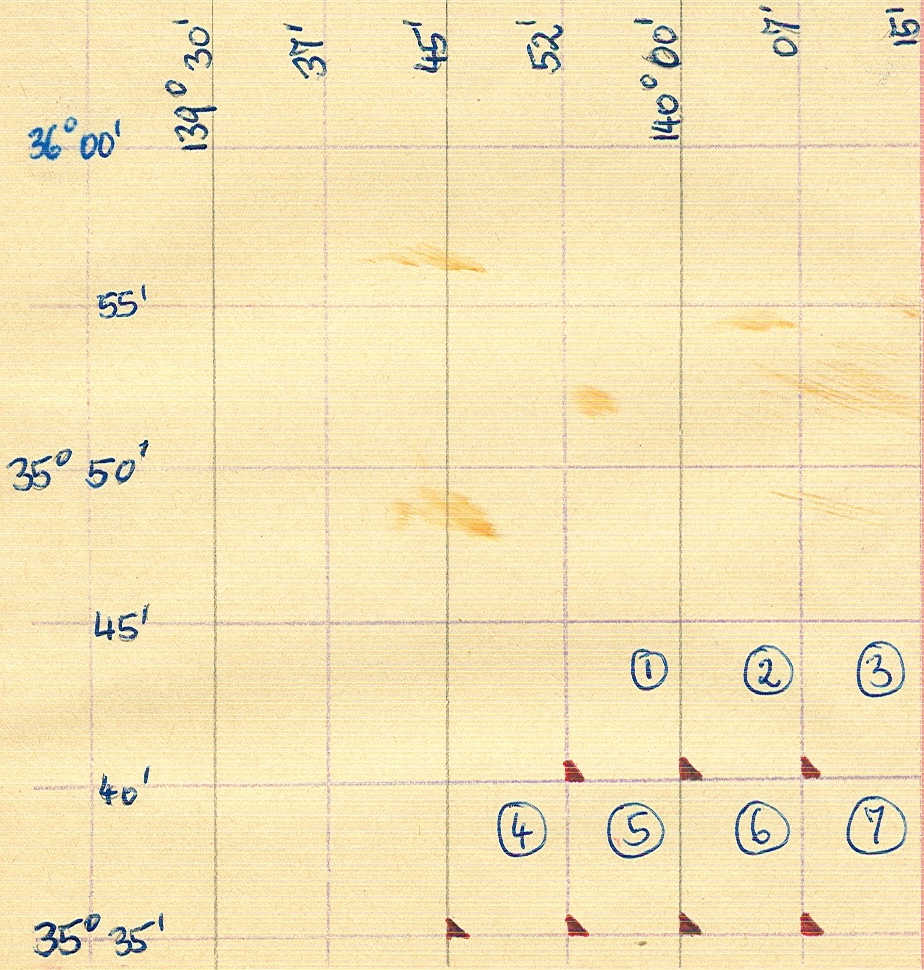 139° 30' 37' 45' 52' 140° 00' 07' 15'
36° 00'
55'
35° 50'
45'
1 2 3
40'
4 5 6 7
35° 35'